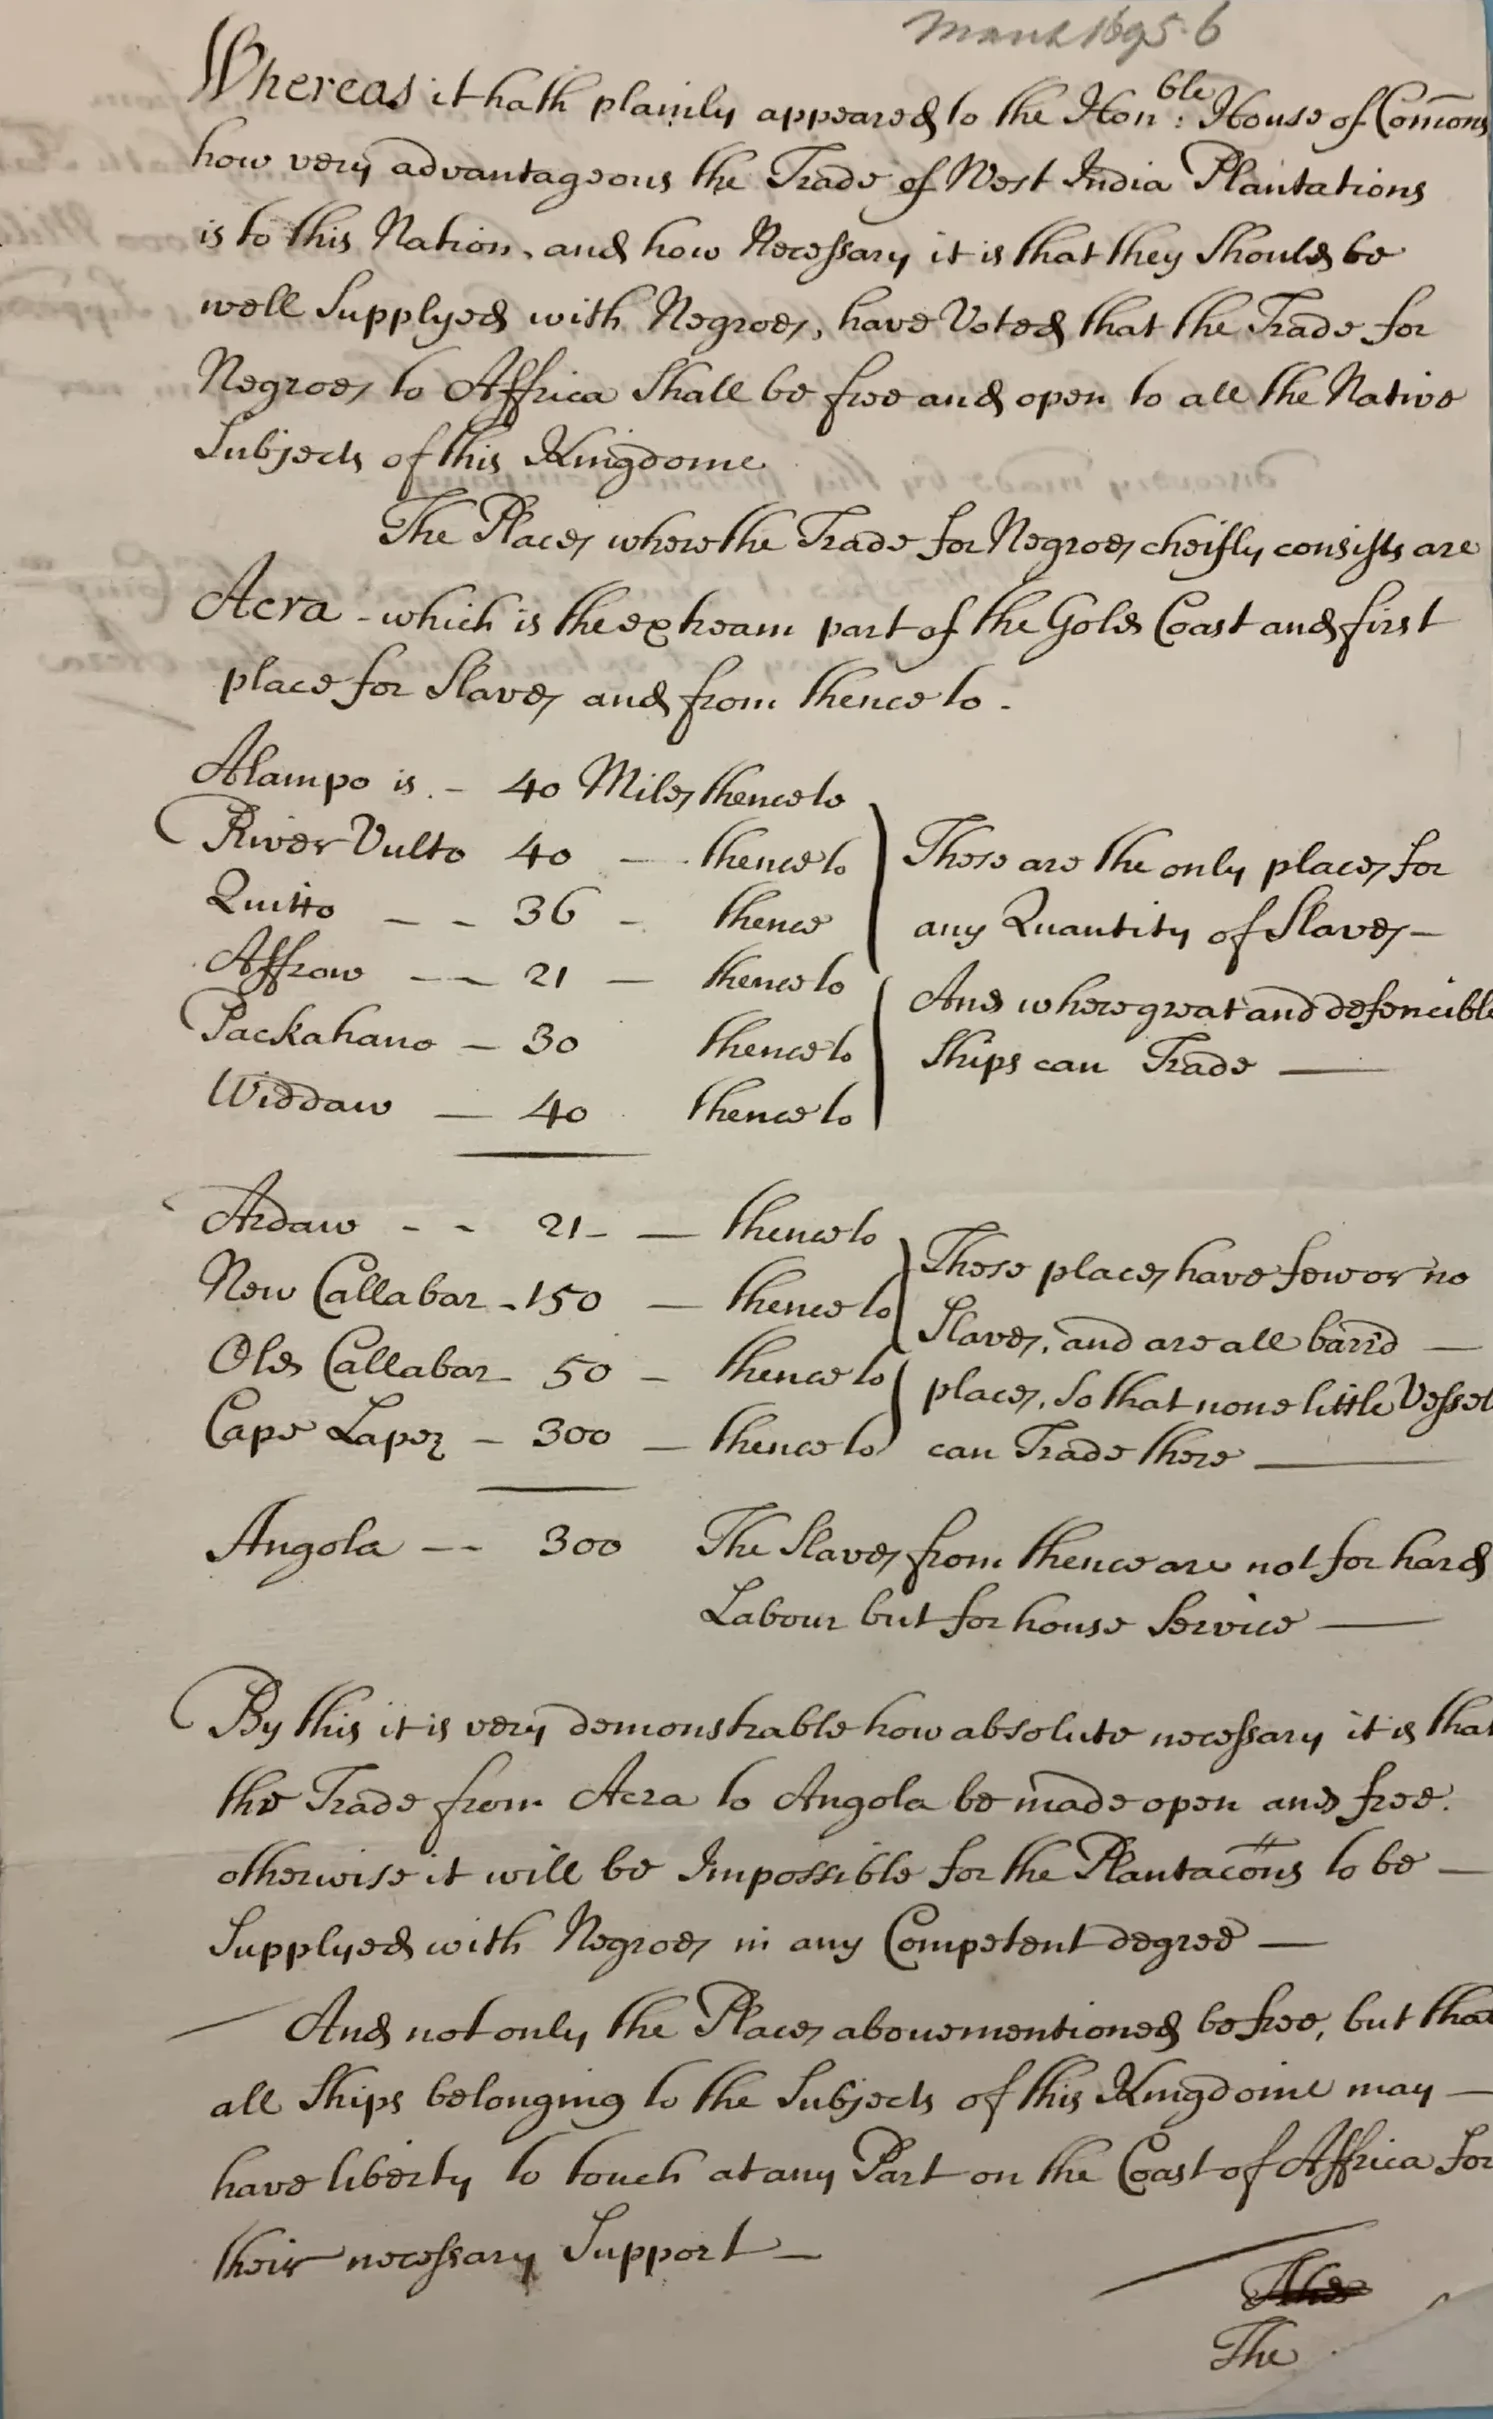 March 1695.6
Whereas it hath plainly appeared to the Hon:ble House of Com̄ons
how very advantageous the Trade of West India Plantations
is to this Nation, and how Necessary it is that they Should be
well Supplyed with Negroes, have Voted that the Trade for
Negroes to Affrica Shall be free and open to all the Native
Subjects of this Kingdome
The Places where the Trade for Negroes cheifly consists are
Acra - which is the extream part of the Gold Coast and first
place for Slaves and from thence to -
Alampo is. - 40 Miles thence to
River Vulto 40 — thence to
Quitto — - 36 - thence
Affrow — — 21 — thence to
Packahano — 30 thence to
Widdaw — 40 thence to
These are the only places for
any Quantity of Slaves —
And where great and defencible
Ships can Trade —
Ardaw - - 21 - — thence to
New Callabar - 150 — thence to
Old Callabar - 50 - thence to
Cape Lapez - 300 — thence to
These places have few or no
Slaves, and are all barr'd —
places, So that none little Vessel
can Trade there —
Angola — - 300 The Slaves from thence are not for hard
Labour but for house Service —
By this it is very demonstrable how absolute necessary it is that
the Trade from Acra to Angola be made open and free.
otherwise it will be Impossible for the Plantacōns to be —
Supplyed with Negroes in any Competent degree —
— And not only the Places abovementioned be free, but that
all Ships belonging to the Subjects of this Kingdome may —
have liberty to touch at any Part on the Coast of Affrica for
their necessary Support —
The